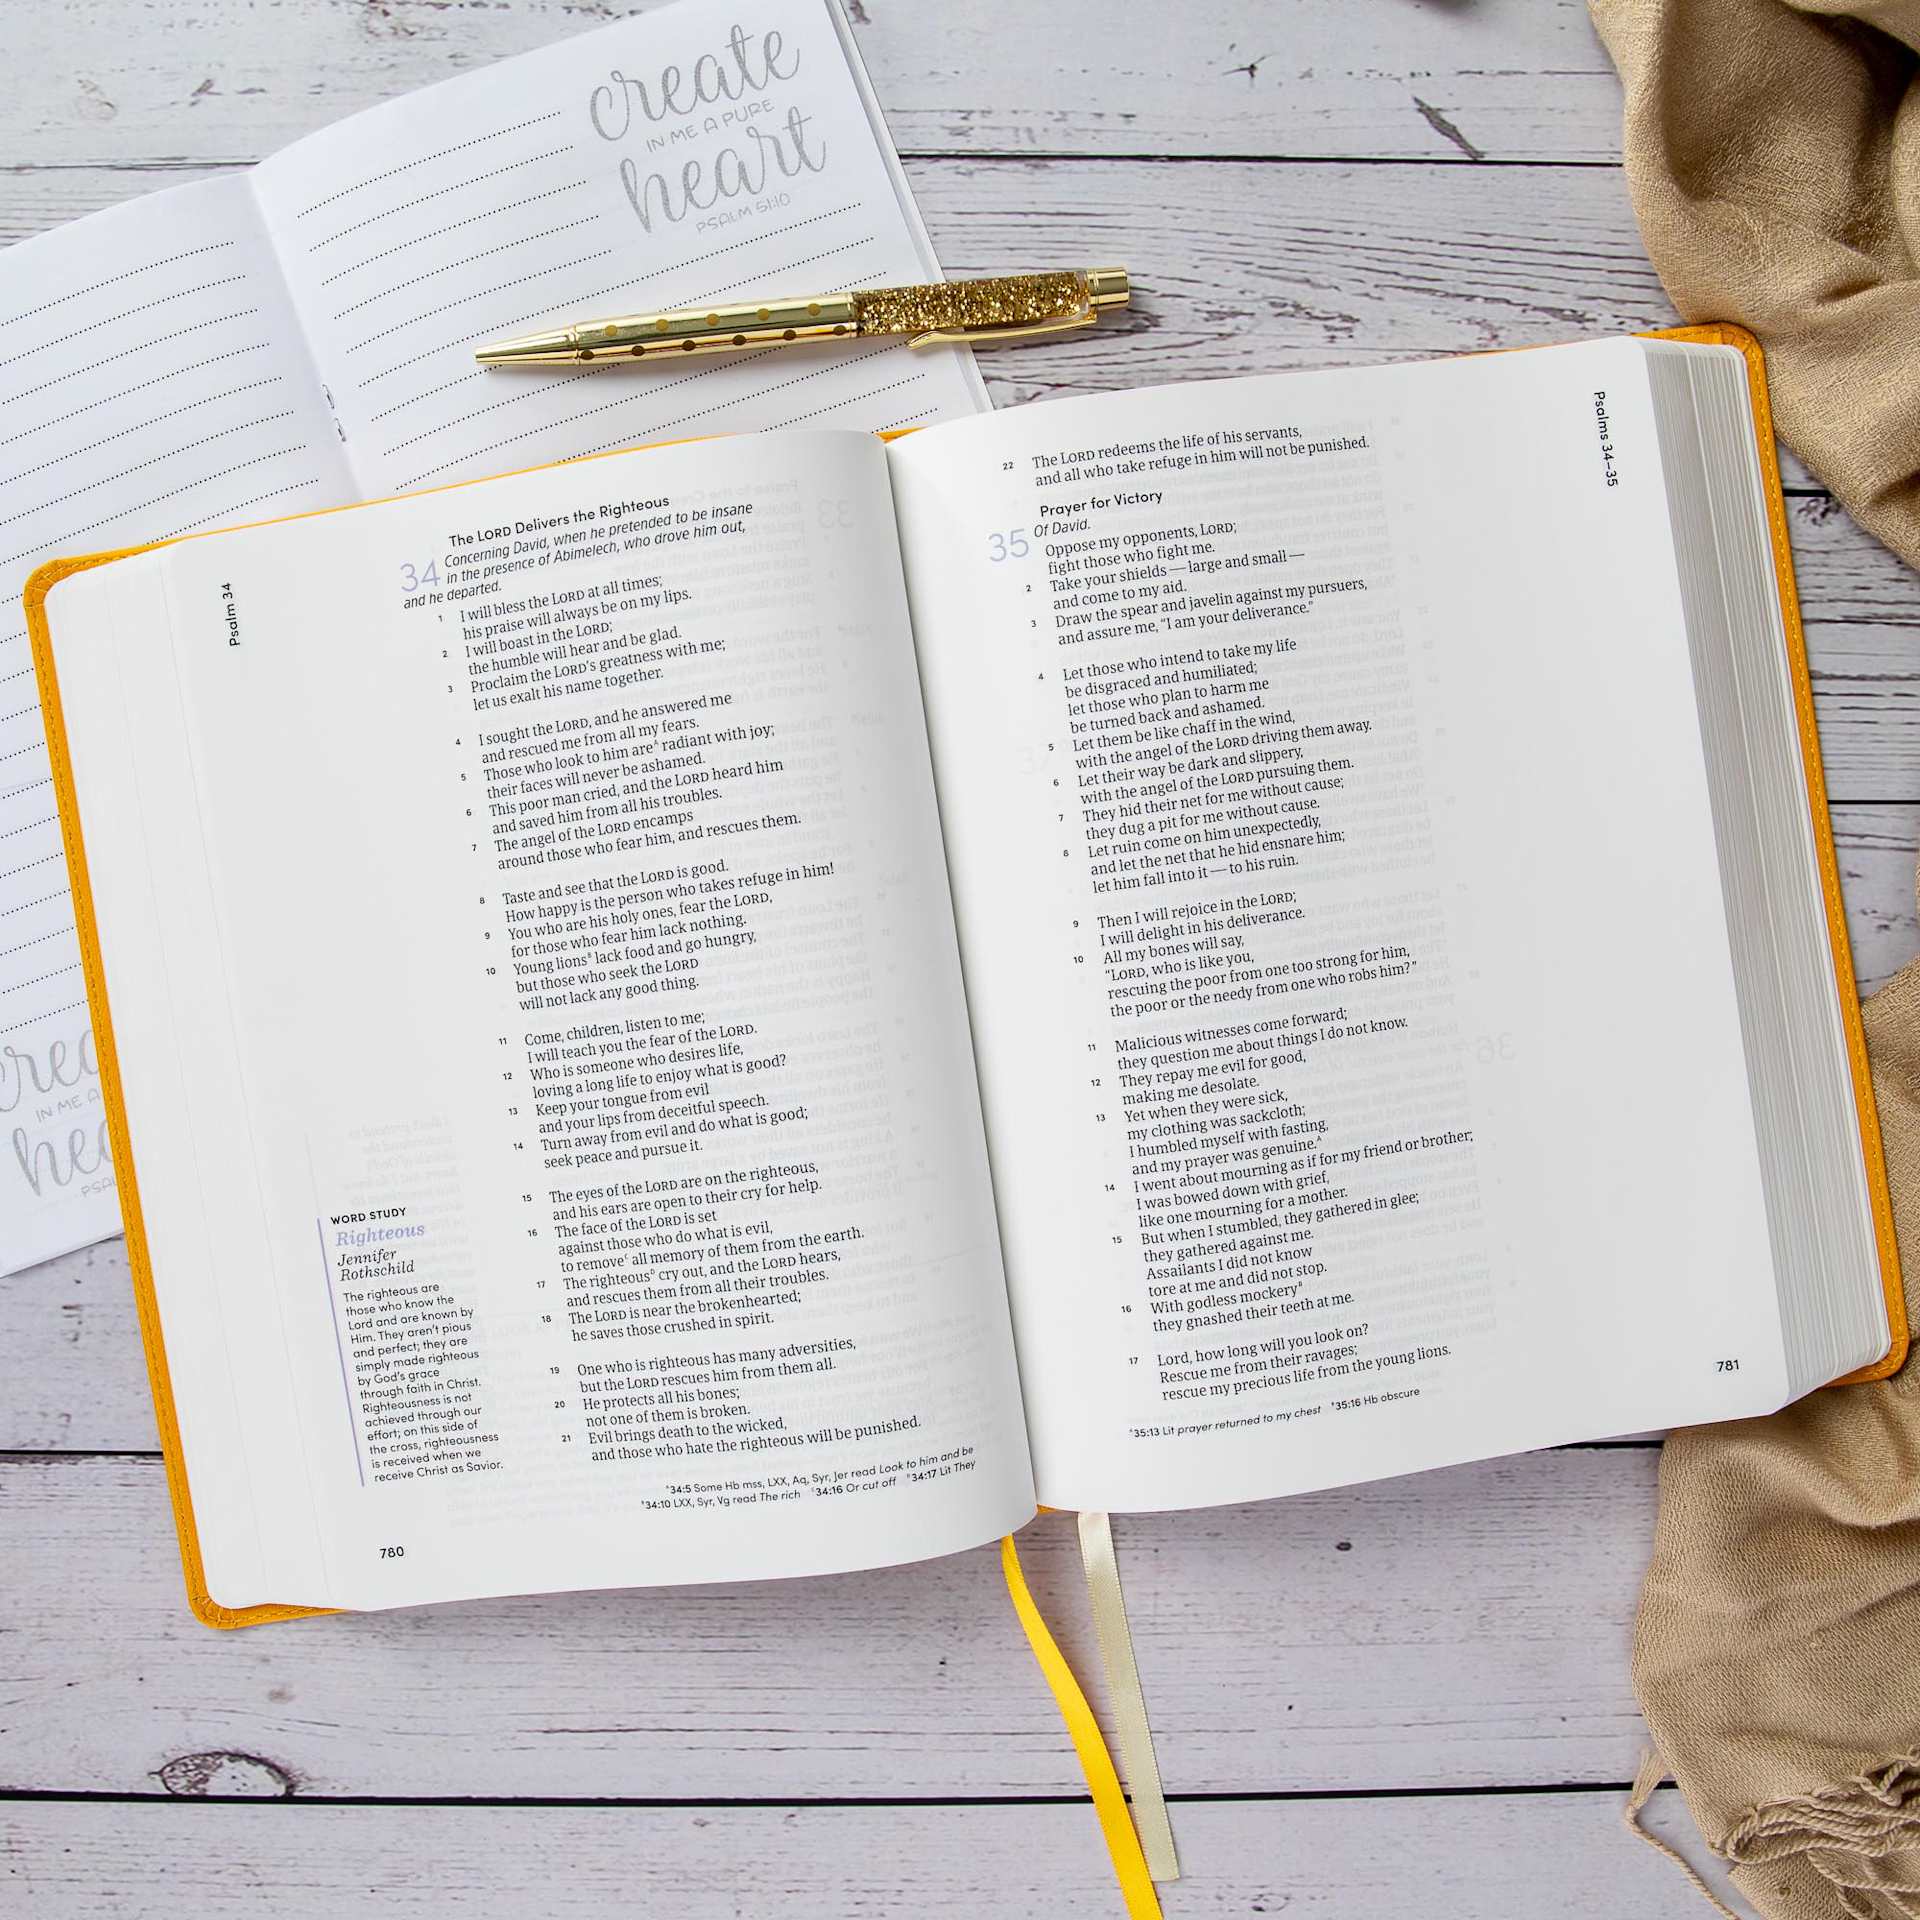 create
IN ME A PURE
heart
PSALM 51:10
Psalm 34
The LORD Delivers the Righteous
34 Concerning David, when he pretended to be insane
in the presence of Abimelech, who drove him out,
and he departed.
1 I will bless the LORD at all times;
his praise will always be on my lips.
2 I will boast in the LORD;
the humble will hear and be glad.
3 Proclaim the LORD's greatness with me;
let us exalt his name together.
4 I sought the LORD, and he answered me
and rescued me from all my fears.
5 Those who look to him are^A radiant with joy;
their faces will never be ashamed.
6 This poor man cried, and the LORD heard him
and saved him from all his troubles.
7 The angel of the LORD encamps
around those who fear him, and rescues them.
8 Taste and see that the LORD is good.
How happy is the person who takes refuge in him!
9 You who are his holy ones, fear the LORD,
for those who fear him lack nothing.
10 Young lions^B lack food and go hungry,
but those who seek the LORD
will not lack any good thing.
11 Come, children, listen to me;
I will teach you the fear of the LORD.
12 Who is someone who desires life,
loving a long life to enjoy what is good?
13 Keep your tongue from evil
and your lips from deceitful speech.
14 Turn away from evil and do what is good;
seek peace and pursue it.
15 The eyes of the LORD are on the righteous,
and his ears are open to their cry for help.
16 The face of the LORD is set
against those who do what is evil,
to remove^C all memory of them from the earth.
17 The righteous^D cry out, and the LORD hears,
and rescues them from all their troubles.
18 The LORD is near the brokenhearted;
he saves those crushed in spirit.
19 One who is righteous has many adversities,
but the LORD rescues him from them all.
20 He protects all his bones;
not one of them is broken.
21 Evil brings death to the wicked,
and those who hate the righteous will be punished.
WORD STUDY
Righteous
Jennifer
Rothschild
The righteous are
those who know the
Lord and are known by
Him. They aren't pious
and perfect; they are
simply made righteous
by God's grace
through faith in Christ.
Righteousness is not
achieved through our
effort; on this side of
the cross, righteousness
is received when we
receive Christ as Savior.
^A34:5 Some Hb mss, LXX, Aq, Syr, Jer read Look to him and be
^B34:10 LXX, Syr, Vg read The rich ^C34:16 Or cut off ^D34:17 Lit They
780
Psalms 34–35
22 The LORD redeems the life of his servants,
and all who take refuge in him will not be punished.
Prayer for Victory
35 Of David.
Oppose my opponents, LORD;
fight those who fight me.
2 Take your shields — large and small —
and come to my aid.
3 Draw the spear and javelin against my pursuers,
and assure me, “I am your deliverance.”
4 Let those who intend to take my life
be disgraced and humiliated;
let those who plan to harm me
be turned back and ashamed.
5 Let them be like chaff in the wind,
with the angel of the LORD driving them away.
6 Let their way be dark and slippery,
with the angel of the LORD pursuing them.
7 They hid their net for me without cause;
they dug a pit for me without cause.
8 Let ruin come on him unexpectedly,
and let the net that he hid ensnare him;
let him fall into it — to his ruin.
9 Then I will rejoice in the LORD;
I will delight in his deliverance.
10 All my bones will say,
“LORD, who is like you,
rescuing the poor from one too strong for him,
the poor or the needy from one who robs him?”
11 Malicious witnesses come forward;
they question me about things I do not know.
12 They repay me evil for good,
making me desolate.
13 Yet when they were sick,
my clothing was sackcloth;
I humbled myself with fasting,
and my prayer was genuine.^A
14 I went about mourning as if for my friend or brother;
I was bowed down with grief,
like one mourning for a mother.
15 But when I stumbled, they gathered in glee;
they gathered against me.
Assailants I did not know
tore at me and did not stop.
16 With godless mockery^B
they gnashed their teeth at me.
17 Lord, how long will you look on?
Rescue me from their ravages;
rescue my precious life from the young lions.
^A35:13 Lit prayer returned to my chest ^B35:16 Hb obscure
781
crea
IN ME A
hea
PSAL